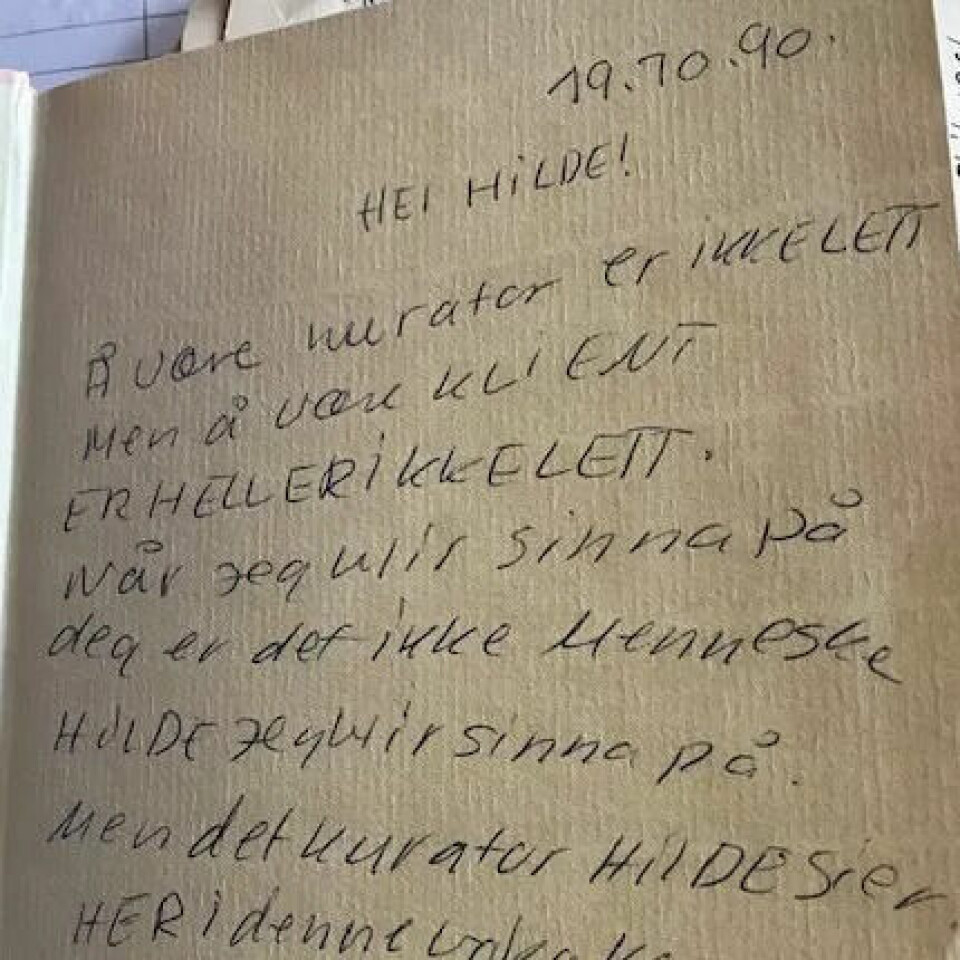 19.10.90.
HEI HILDE!
Å være kurator er IKKE LETT
Men å være KLIENT
ER HELLER IKKE LETT.
Når jeg blir sinna på
deg er det ikke Menneske
HILDE jeg blir sinna på.
Men det kurator HILDE sier.
HER i denne